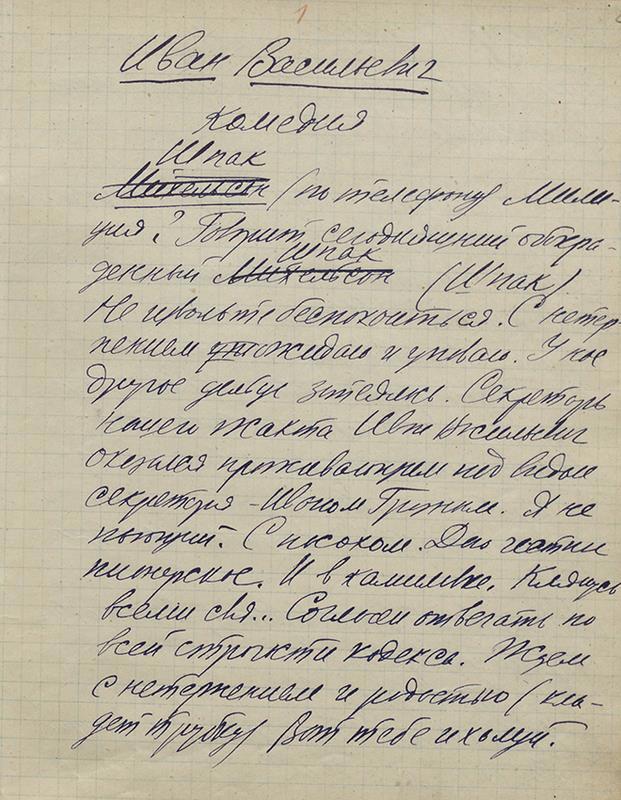 1
Иван Васильевич
комедия
Шпак
Михельсон (по телефону) Мили-
ция? Говорит сегодняшний обкра-
Шпак
денный Михельсон (Шпак)
Не извольте беспокоиться. С нетер-
пением ожидаю и уповаю. У нас
другое дельце затеялось. Секретарь
нашего жакта Иван Васильевич
оказался проживающим под видом
секретаря - Иваном Грозным. Я не
пьющий. С посохом. Даю честное
пионерское. И в Клянусь
всеми свя... Согласен отвечать по
всей строгости кодекса. Ждем
с нетерпением и радостью (кла-
дет трубку) Вот тебе и холуй.